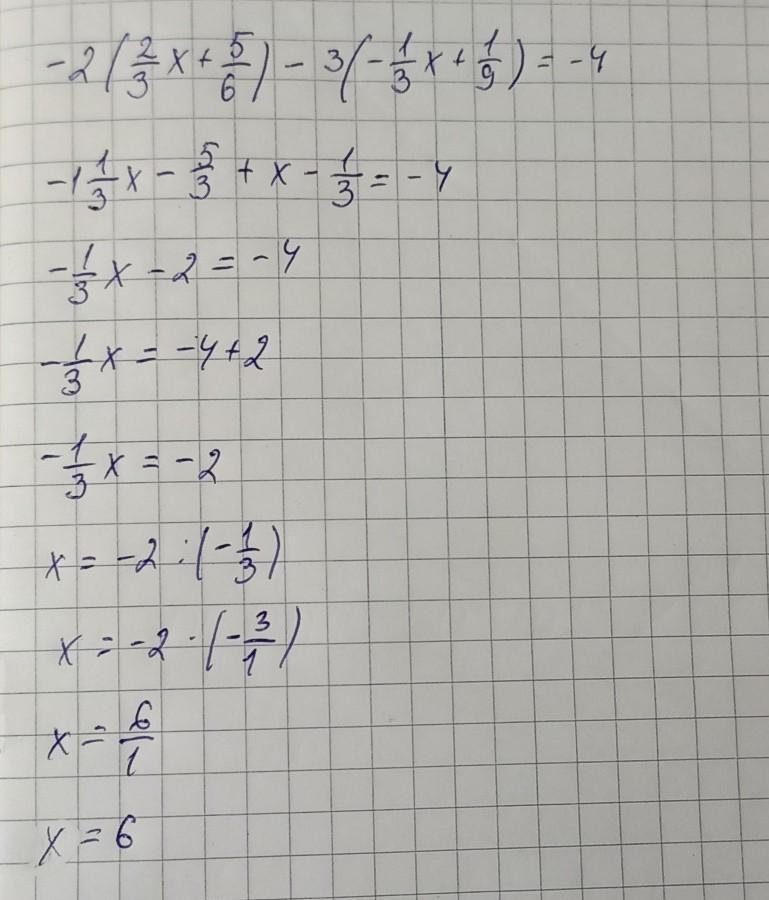 -2(2/3 x + 5/6) - 3(-1/3 x + 1/9) = -4
-1 1/3 x - 5/3 + x - 1/3 = -4
-1/3 x - 2 = -4
-1/3 x = -4 + 2
-1/3 x = -2
x = -2 : (-1/3)
x = -2 · (-3/1)
x = 6/1
x = 6